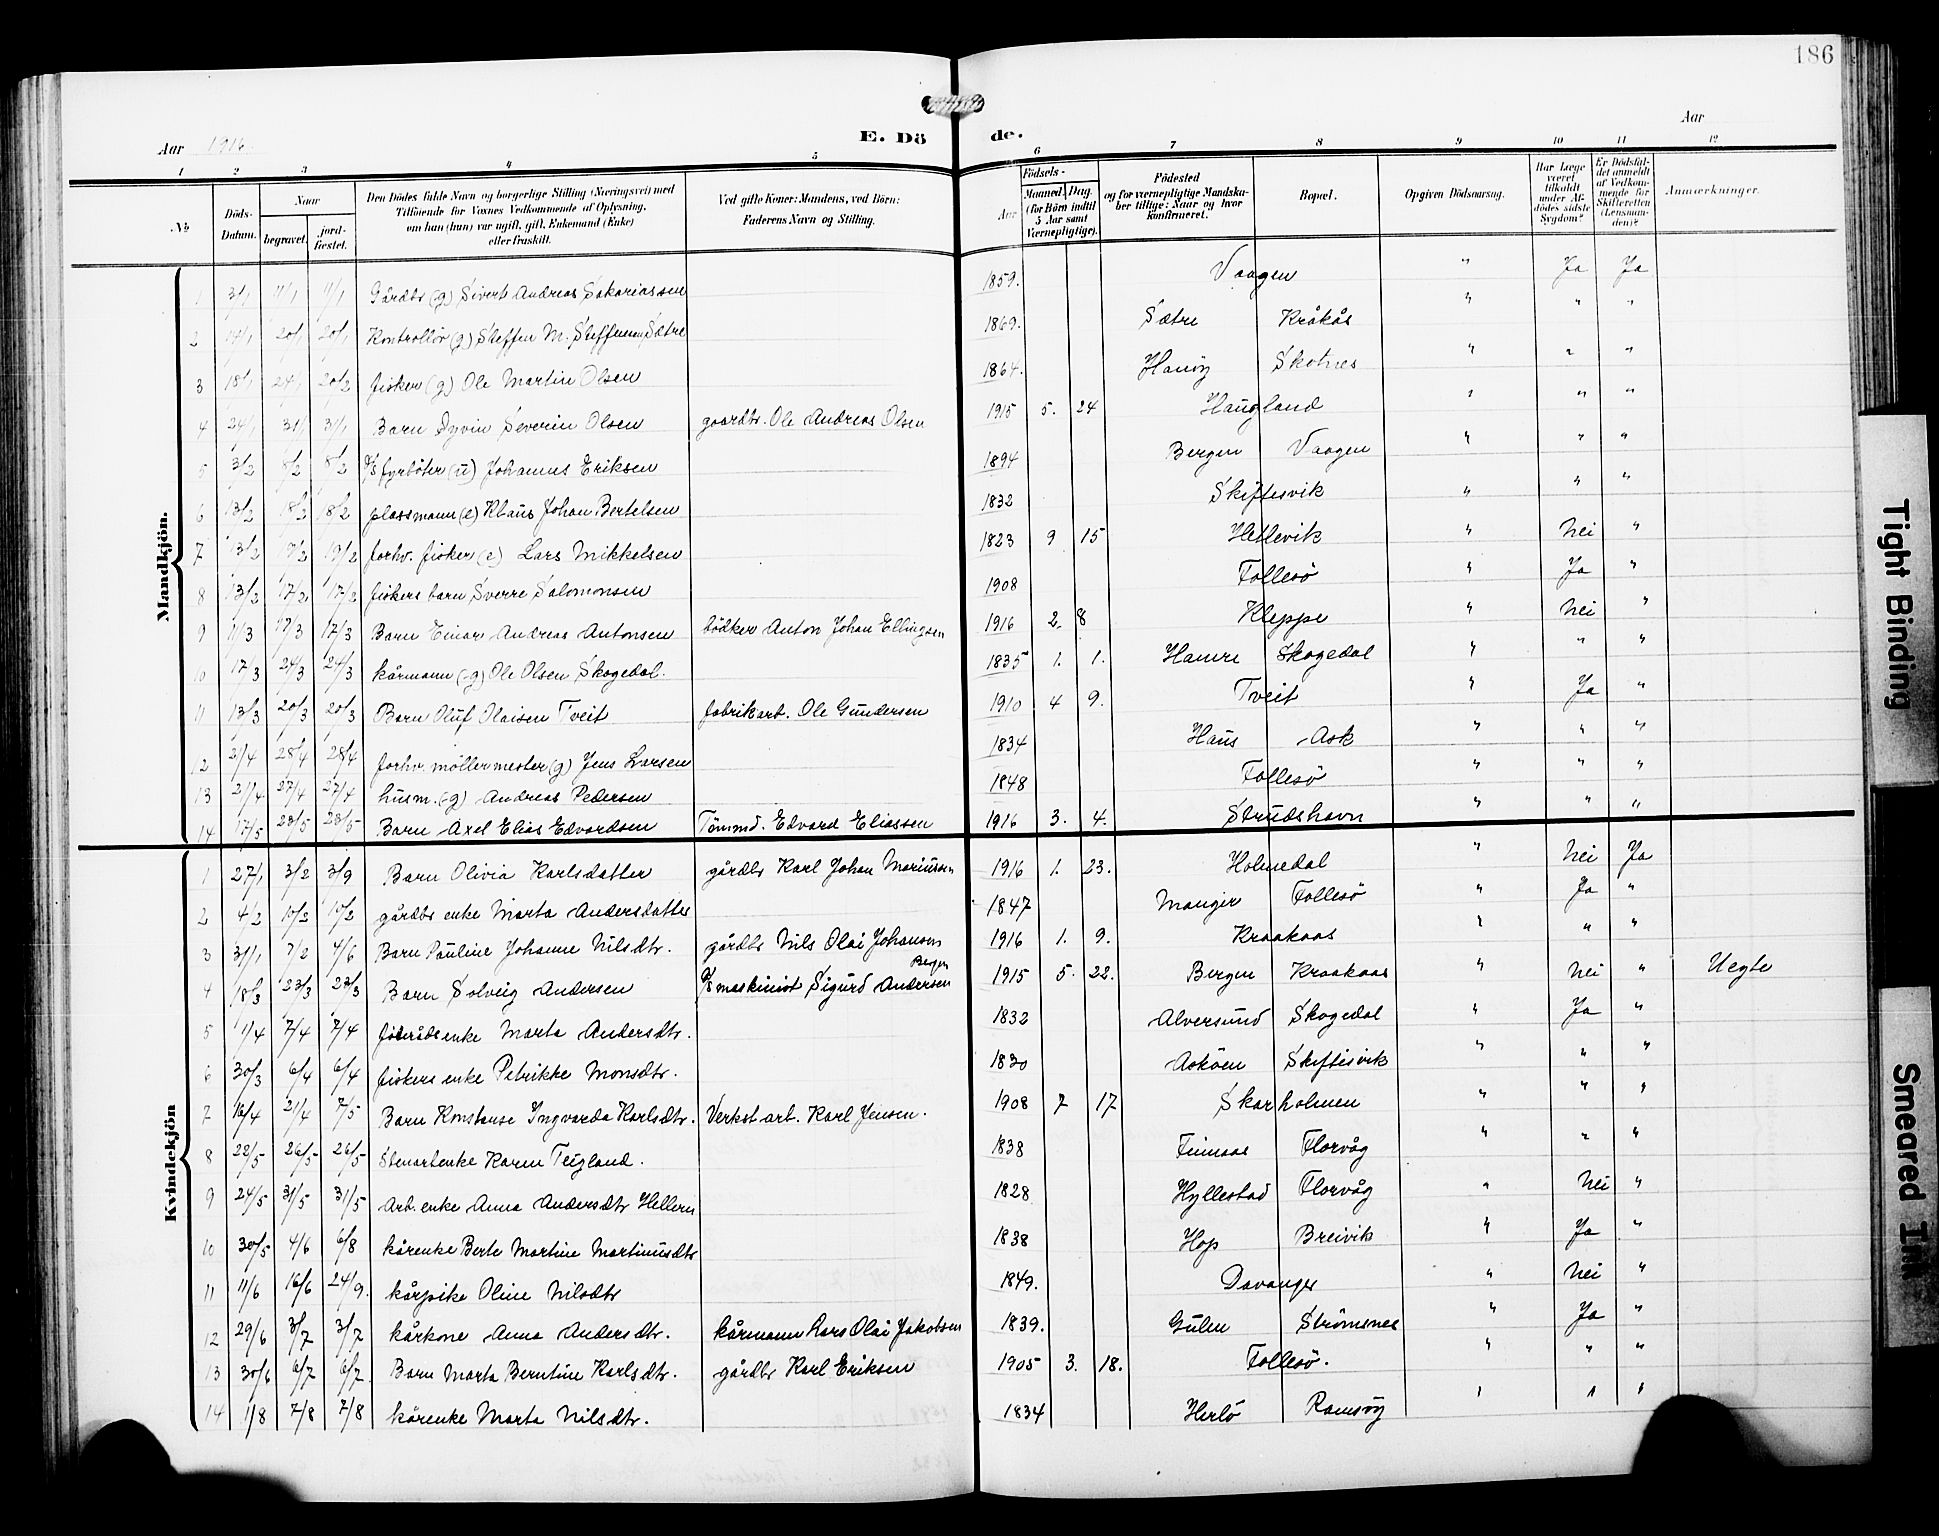 186
Aar 1916.
E. Dö de.
Aar
1 2 3 4 5 6 7 8 9 10 11 12
№
Döds-Datum.
Naar
begravet.
jord-fæstet.
Den Dödes fulde Navn og borgerlige Stilling (Næringsvei) med Tilföiende for Voxnes Vedkommende af Oplysning, om han (hun) var ugift, gift, Enkemand (Enke) eller fraskilt.
Ved gifte Koner: Mandens, ved Börn: Faderens Navn og Stilling.
Födsels-
Aar
Maaned. Dag.
(for Börn indtil 5 Aar samt Værnepligtige).
Födested og for værnepligtige Mandskaber tillige: Naar og hvor konfirmeret.
Bopæl.
Opgiven Dödsaarsag.
Har Læge været tilkaldt under Afdödes sidste Sygdom?
Er Dödsfaldet anmeldt af Vedkommende for Skifteretten (Lensmanden)?
Anmærkninger.
Mandkjön.
1 3/1 11/1 11/1 Gårdbr (g) Sivert Andreas Sakariassen 1859. Vaagen " Ja Ja
2 14/1 20/1 20/1 Kontrollör (g) Steffen M. Steffensen Sætre 1869. Sætre Kråkås " " "
3 18/1 24/1 20/2 fisker (g) Ole Martin Olsen 1864. Hanöy Skotnes " " "
4 24/1 31/1 31/1 Barn Öyvin Severin Olsen gaardbr. Ole Andreas Olsen 1915 5. 24 Haugland " " "
5 3/2 8/2 8/2 D/S fyrböter (u) Johannes Eriksen 1894 Bergen Vaagen " " "
6 13/2 18/2 18/2 plassmann (e) Klaus Johan Bertelsen 1832 Skiftesvik " " "
7 13/2 19/2 19/2 forhv. fisker (e) Lars Mikkelsen 1823 9 15 Hetlevik " Nei "
8 13/2 17/2 17/2 fiskers barn Sverre Salomonsen 1908 Follesö " Ja "
9 11/3 17/3 17/3 Barn Einar Andreas Antonsen bödker Anton Johan Ellingsen 1916 2. 8 Kleppe " Nei "
10 17/3 24/3 24/3 kårmann (g) Ole Olsen Skogedal. 1835 1. 1. Hamre Skogedal " " "
11 13/3 20/3 20/3 Barn Oluf Olaisen Tveit fabrikarb. Ole Gundersen 1910 4 9. Tveit " Ja "
12 21/4 28/4 28/4 forhv. möllermester (g) Jens Larsen 1834 Haus Ask " " "
13 21/4 27/4 27/4 husm. (g) Andreas Pedersen 1848 Follesö " " "
14 17/5 23/5 23/5 Barn Axel Elias Edvardsen Tömmd. Edvard Eliassen 1916 3. 4. Strudshavn " " "
Kvindekjön
1 27/1 3/2 3/9 Barn Olivia Karlsdatter gårdbr Karl Johan Mariussen 1916 1. 23. Holmedal " Nei Ja
2 4/2 10/2 10/2 gårdbr enke Marta Andersdatter 1847 Manger Follesö " Ja "
3 31/1 7/2 4/6 Barn Pauline Johanne Nilsdtr. gårdbr Nils Olai Johansen 1916 1. 9. Kraakaas " " "
4 18/3 23/3 23/3 Barn Solveig Andersen D/S maskinist Sigurd Andersen Bergen 1915 5. 22. Bergen Kraakaas " Nei " Uegte
5 1/4 7/4 7/4 föderådsenke Marta Andersdtr. 1832 Alversund Skogedal " Ja "
6 30/3 6/4 6/4 fiskers enke Petrikke Monsdtr. 1830 Asköen Skiftesvik " " "
7 16/4 21/4 7/5 Barn Konstanse Ingvarda Karlsdtr. Verkst arb. Karl Jensen. 1908 7 17 Skarholmen " " "
8 22/5 26/5 26/5 Stuartenke Karen Teigland. 1838 Finnaas Florvåg " " "
9 24/5 31/5 31/5 Arb. enke Anna Andersdtr Hellern 1828 Hyllestad Florvåg " Nei "
10 30/5 4/6 6/8 kårenke Berte Martine Martinusdtr 1838 Hop Breivik " Ja "
11 11/6 16/6 24/9. kårpike Oline Nilsdtr 1849. Davanger " Nei "
12 29/6 3/7 3/7 kårkone Anna Andersdtr. kårmann Lars Olai Jakobsen 1839. Gulen Strömsnes " Ja "
13 30/6 6/7 6/7. Barn Marta Berntine Karlsdtr. gårdbr Karl Eriksen 1905 3. 18. Follesö. " " "
14 1/8 7/8 7/8 kårenke Marta Nilsdtr. 1834 Herlö Ramsöy " " "
Tight Binding
Smeared Ink